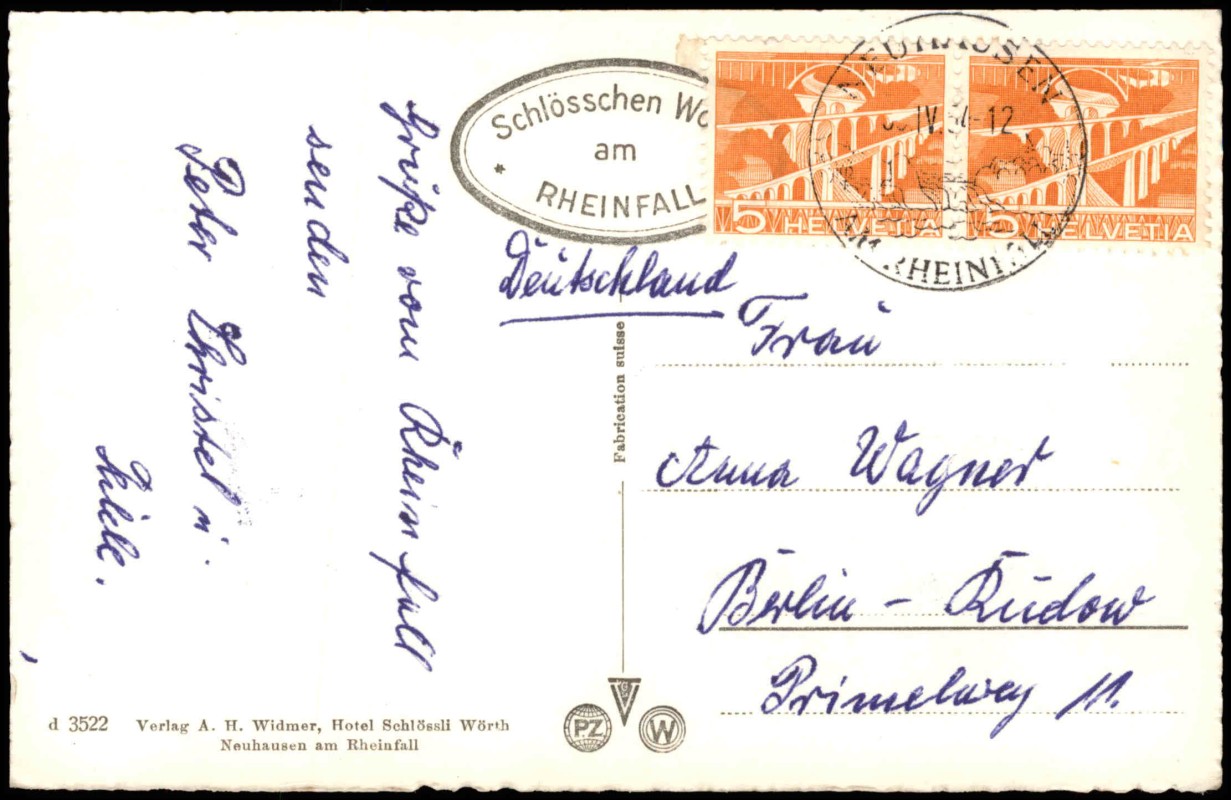 Grüße vom Rheinfall
senden
Peter Christel u.
Schlösschen Wö
am
* RHEINFALL
5 HELVETIA
5 HELVETIA
NEUHAUSEN
IV. 54-12
AM RHEINFALL
Deutschland
Frau
Anna Wagner
Berlin - Rudow
Primelweg 11.
Fabrication suisse
d 3522 Verlag A. H. Widmer, Hotel Schlössli Wörth
Neuhausen am Rheinfall
PZ
W